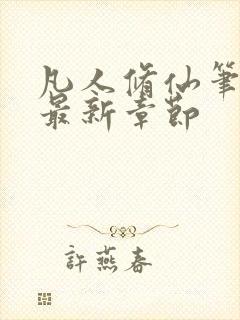 凡人脩仙筆
最新章節
許燕春